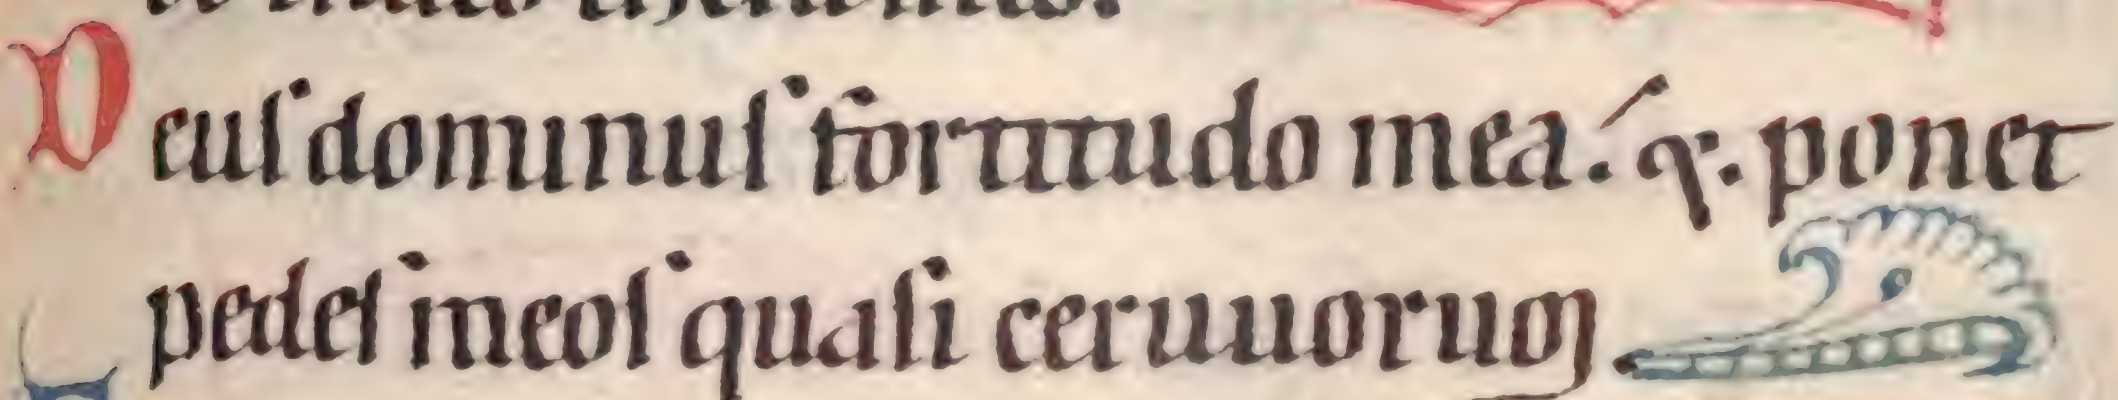 Deus dominus fortitudo mea. q. ponet
pedes meos quasi ceruuorum